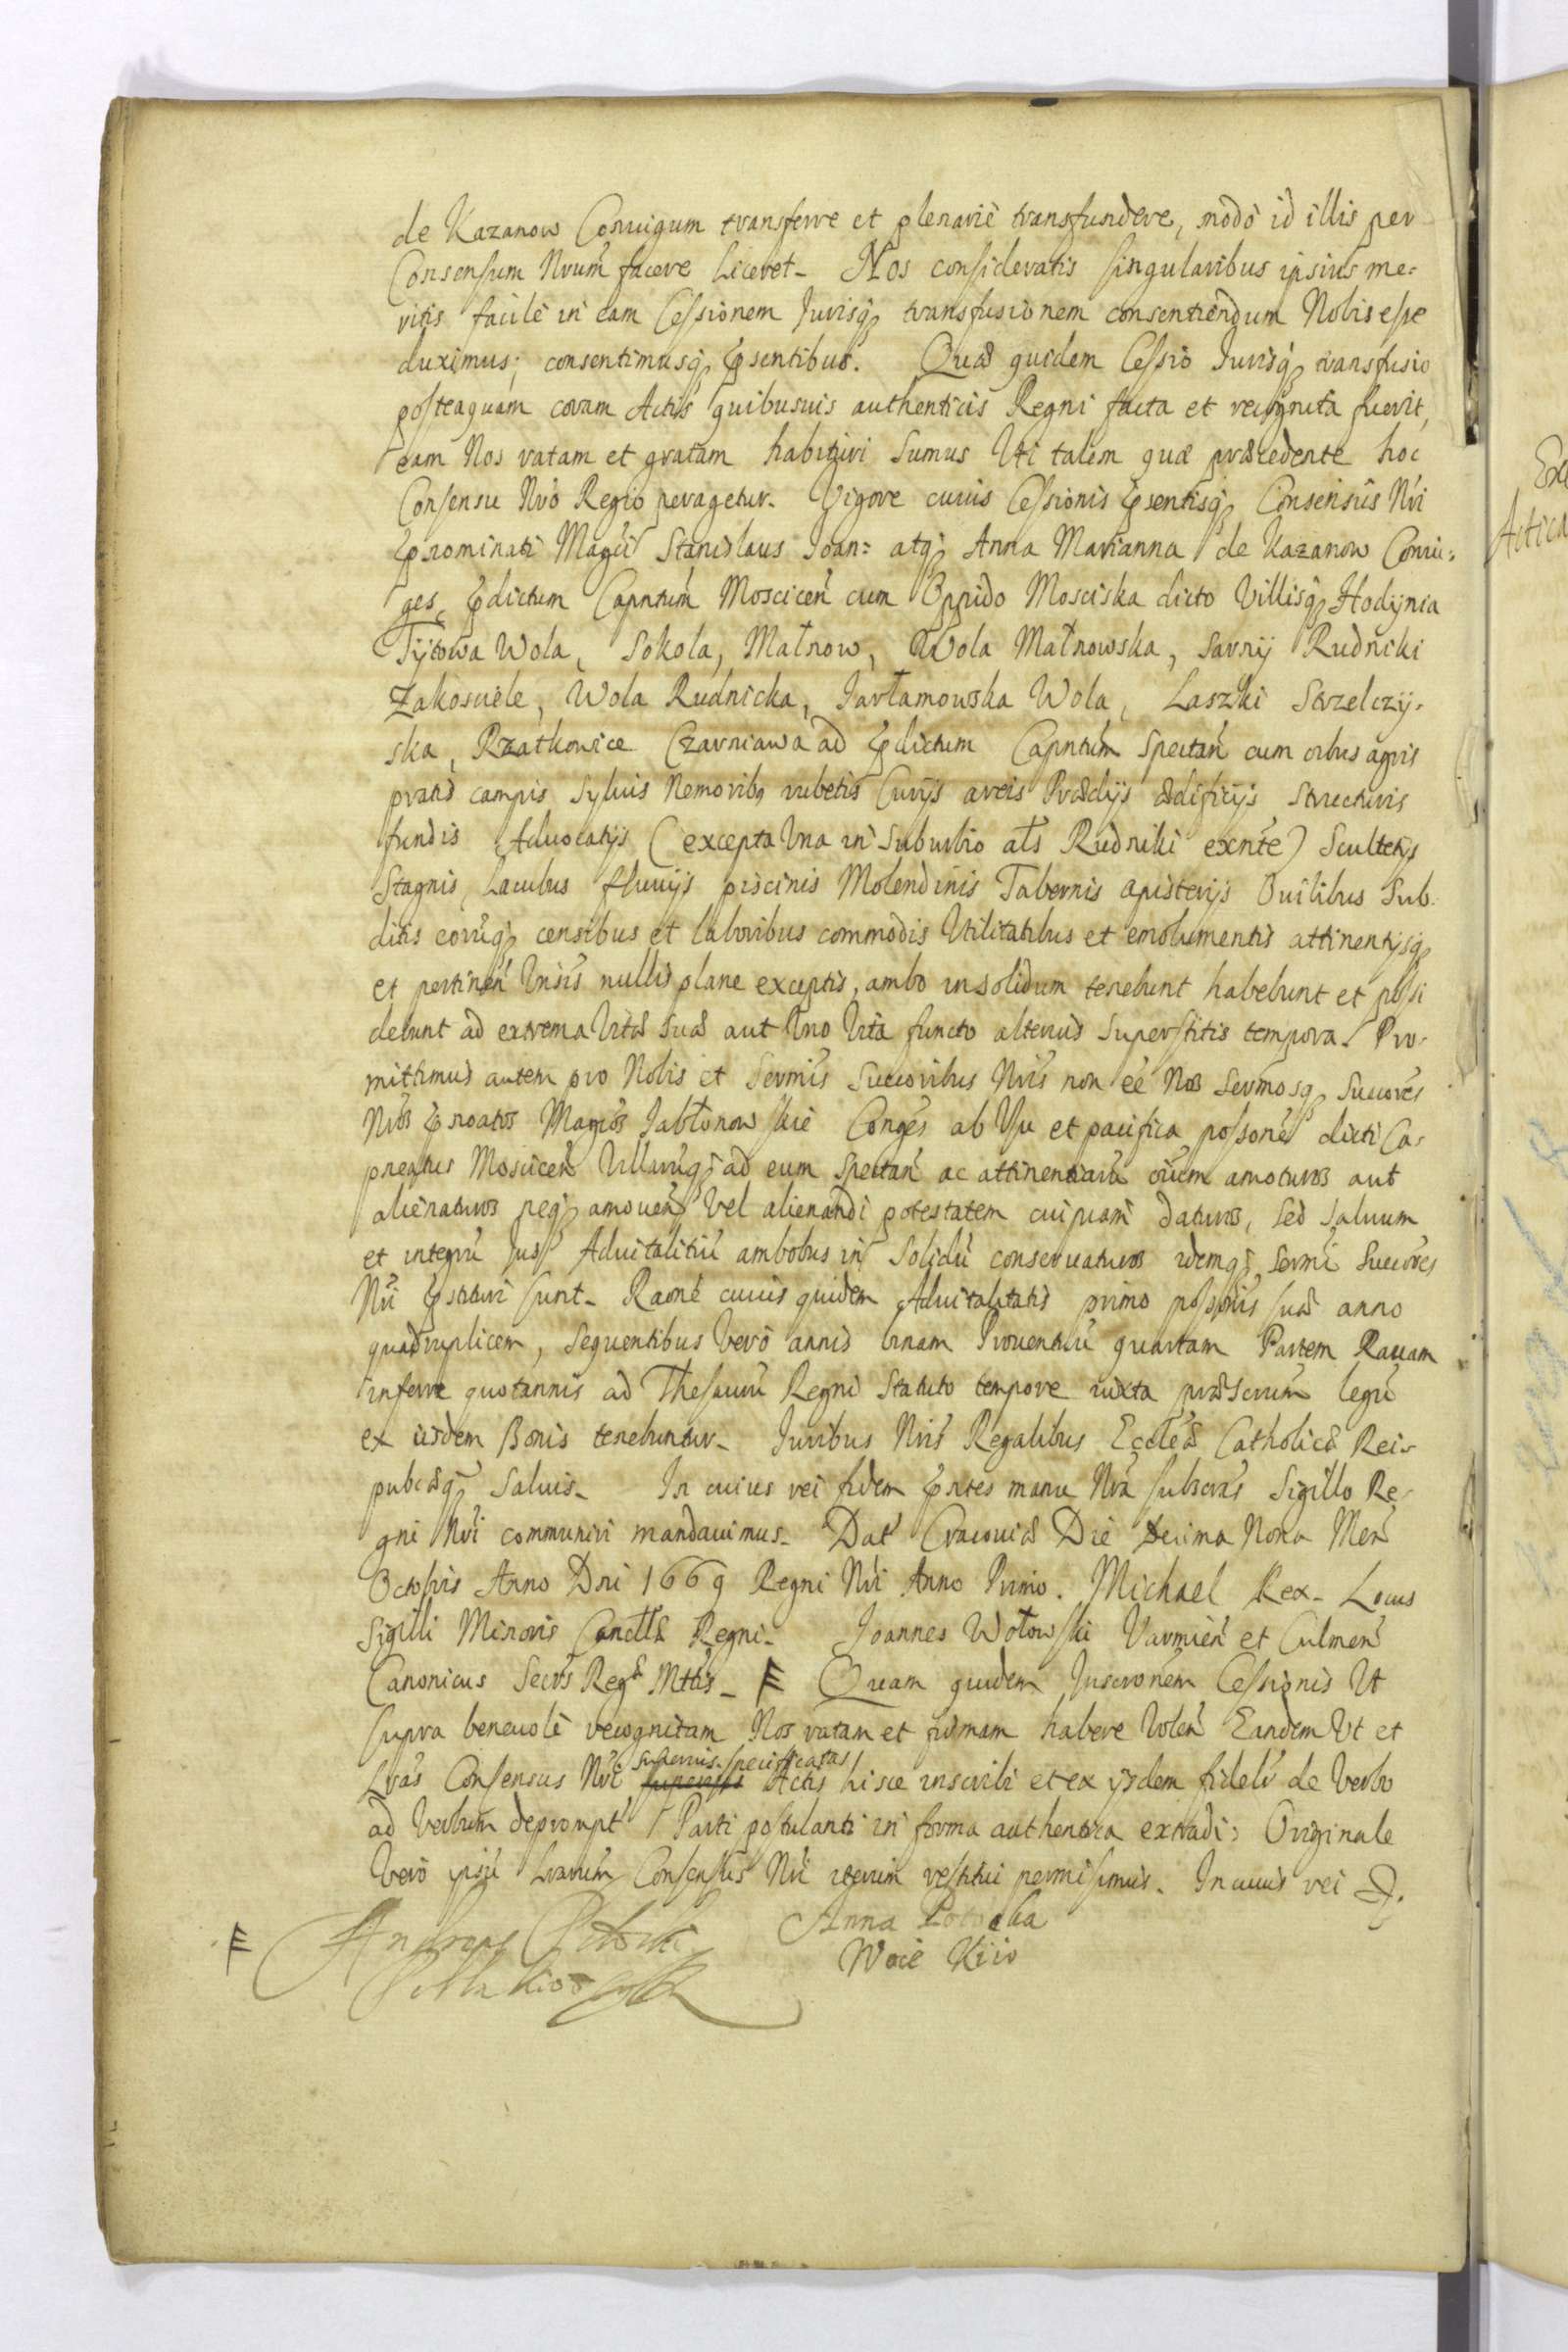 de Kazanow Coniugum transferre et plenariè transfundere, modò id illis per
Consensum Nrum̃ facere liceret_ Nos consideratis singularibus ipsius me:
ritis facilè in eam Cessionem Jurisq₃ transfusionem consentiendum Nobis esse
duximus; consentimusq₃ p̃sentibus. Quæ quidem Cessio Jurisq₃ transfusio
posteaquam coram Actis quibusuis authenticis Regni facta et recognita fuerit,
eam Nos ratam et gratam habituri sumus Vti talem quæ præcedente hoc
Consensu Nrõ Regio peragetur_ Vigore cuius Cessionis p̃sentisq₃ Consensus Nri
p̃nominati Magci Stanislaus Joan: atq₃ Anna Marianna de Kazanow Coniu:
ges, p̃dictum Capntum̃ Moscicen̄ cum Oppido Mosciska dicto Villisq₃ Hodynia
Tytowa Wola, Sokola, Małnow, Wola Małnowska, Sarny Rudniki
Zakosciele, Wola Rudnicka, Jarłamowska Wola, Laszki Strzelczy:
ska, Rzatkowice Czarniawa ad p̃dictum Capntum̃ spectan̄ cum oībus agris
pratis campis syluis Nemoribq rubetis Curijs areis Prædijs ædificijs structuris
fundis Aduocatijs (excepta Vna in Suburbio ałs Rudniki exnt̃e) Scultetijs
Stagnis, Lacubus fluuijs piscinis Molendinis Tabernis apisterijs Ouilibus Sub:
ditis eorũq₃ censibus et laboribus commodis Vtilitatibus et emolumentis attinentijsq₃
et pertinen̄ Vnīs nullis plane exceptis, ambo in solidum tenebunt habebunt et possi
debunt ad extrema Vitæ suæ aut Vno Vita functo alterius superstitis tempora. Pro:
mittimus autem pro Nobis et Serm̃is Succoribus Nrĩs non eē Nos Serm̃osq₃ Succores
Nros p̃noatos Magcos Jabłonowskie Conges ab Vsu et pacifica possonē dicti Ca:
pneatus Moscicen̄ Villarũq₃ ad eum spectan̄ ac attinentiarũ oīum amoturos aut
alienaturos neq₃ amouen̄ Vel alienandi potestatem cuipiam daturos, sed saluum
et integrũ Jus Aduitalitiũ ambobus in solidũ conseruaturos idemq₃ Serm̃i Succores
Nrĩ p̃stituri sunt_ Raone cuius quidem Aduitalitatis primo possonis suæ anno
quadruplicem, sequentibus Verò annis Vnam Prouentuũ quartam Partem Rauam
inferre quotannis ad Thesaurũ Regni Statuto tempore iuxta præscrum̃ legũ
ex iisdem Bonis tenebuntur_ Juribus Nrĩs Regalibus Eccleæ Catholicæ Rei:
pubcæq₃ saluis_ In cuius rei fidem p̃ntes manu Nra subscras Sigillo Re:
gni Nri communiri mandauimus_ Dat Cracouiæ Die Decima Nona Men̄
Octobris Anno Dni 1669 Regni Nri Anno Primo. Michael Rex_ Locus
Sigilli Minoris Cancłæ Regni_ Joannes Wołowski Varmien̄ et Culmen̄
Canonicus Secrus Regæ Mttis_ Quam quidem Inscronem Cessionis Vt
supra beneuolè recognitam Nos ratam et firmam habere Volen̄ Eandem Vt et
Lras Consensus Nri superius specificatas Actis hisce inscribi et ex ijsdem fideli de Verbo
ad Verbum deprompt Parti postulanti in forma authentica extradi; Originale
Verò ipsũ Lrarum̃ Consensus Nri iterum restitui permisimus_ In cuius rei
Andreas Potocki
Anna Potocka
Woie Kiio